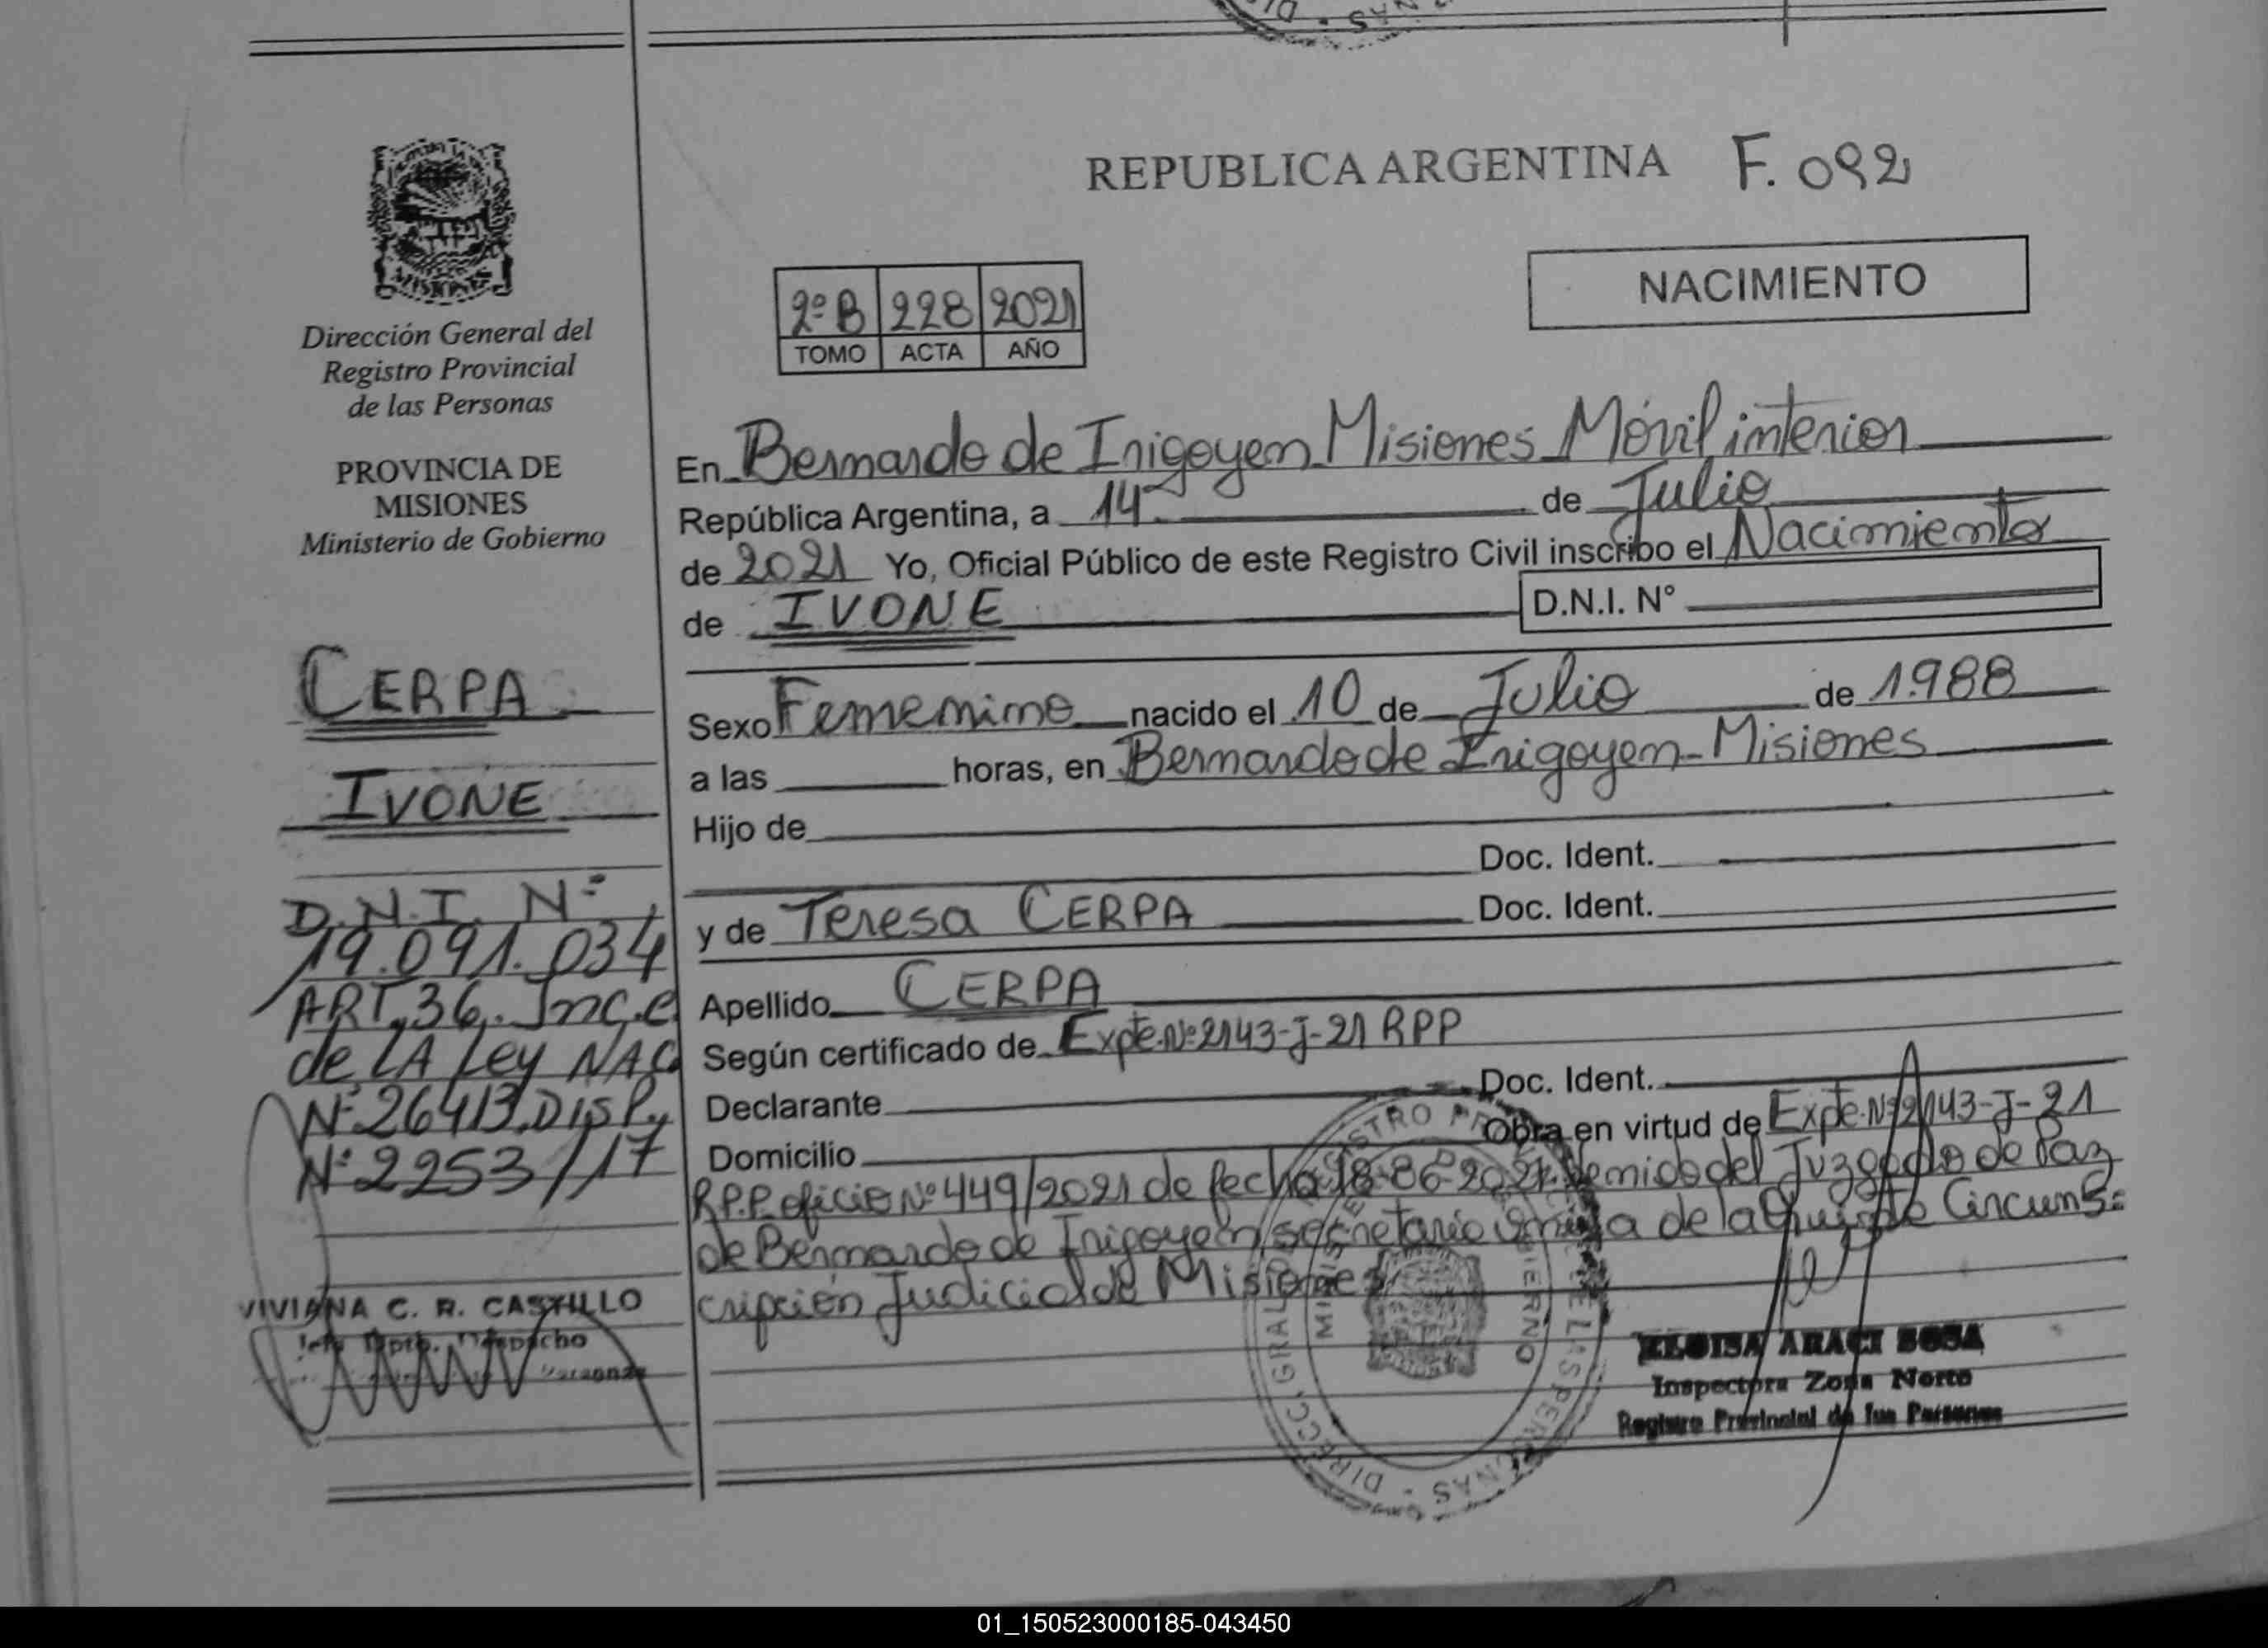 REPUBLICA ARGENTINA F. 092
NACIMIENTO
2º B 228 2021
TOMO ACTA AÑO
MISIONES
Dirección General del
Registro Provincial
de las Personas
PROVINCIA DE
MISIONES
Ministerio de Gobierno
CERPA
IVONE
D.N.I. Nº
19.091.034
ART. 36. Inc. c
de LA Ley NAC
Nº 26413. DISP.
Nº 2253/17
VIVIANA C. R. CASTILLO
Jefe Dpto. Despacho
En Bernardo de Irigoyen Misiones Móvil interior
República Argentina, a 14 de Julio
de 2021 Yo, Oficial Público de este Registro Civil inscribo el Nacimiento
de IVONE D.N.I. N°
Sexo Femenino nacido el 10 de Julio de 1.988
a las horas, en Bernardo de Irigoyen - Misiones
Hijo de
Doc. Ident.
y de Teresa CERPA Doc. Ident.
Apellido CERPA
Según certificado de Expte. Nº 2143-J-21 RPP
Declarante Doc. Ident.
Domicilio Obra en virtud de Expte. Nº 2143-J-21
R.P.P. oficio Nº 449/2021 de fecha 18-06-2021 Venido del Juzgado de Paz
de Bernardo de Irigoyen secretaria única de la Quinta Circuns-
cripción Judicial de Misiones
ELOISA ARACI SOSA
Inspectora Zona Norte
Registro Provincial de las Personas
01_150523000185-043450